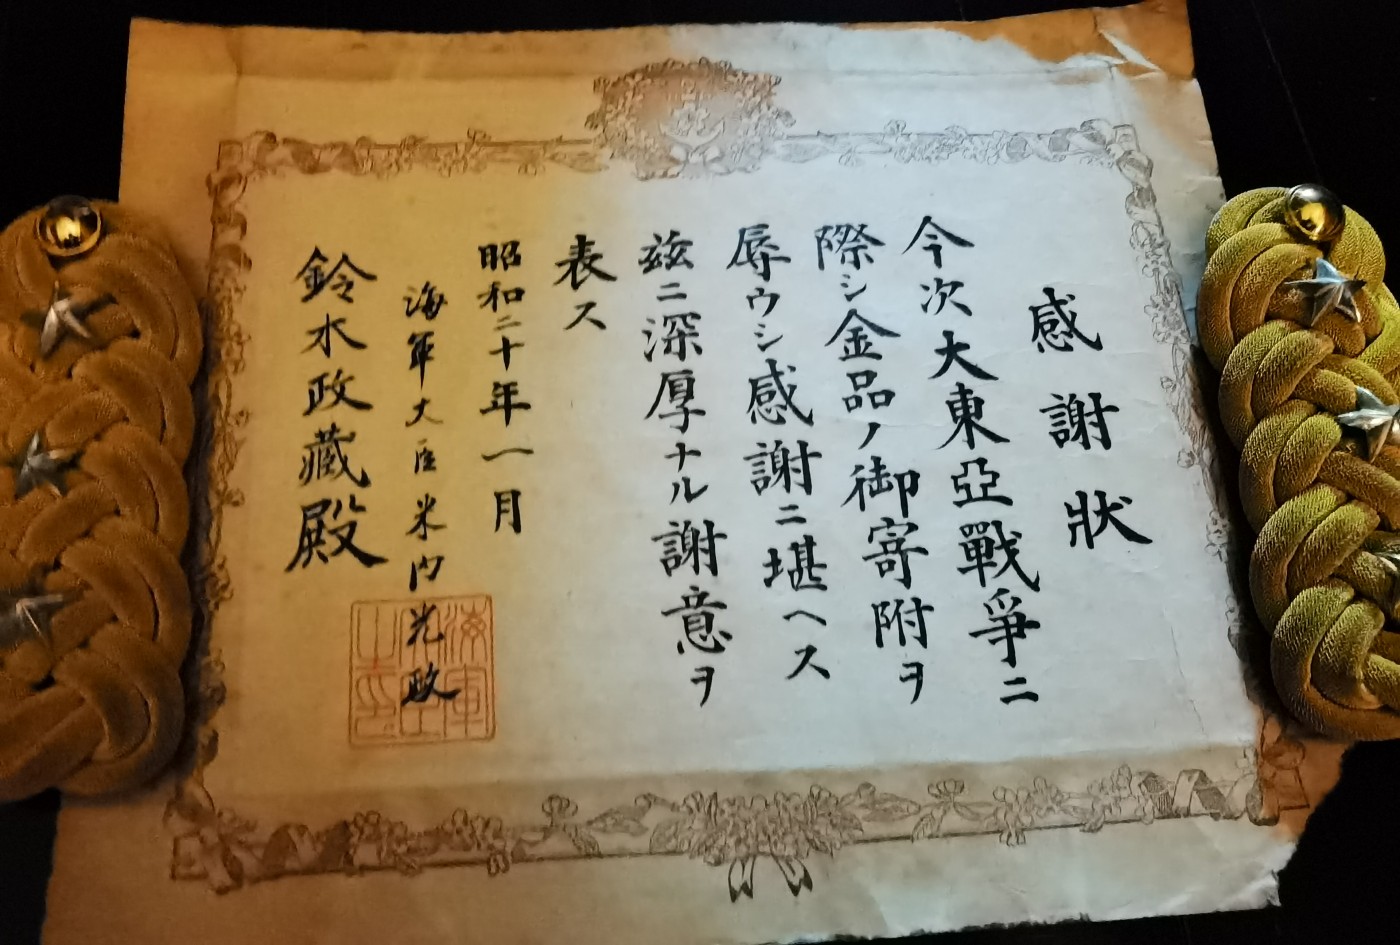 感謝狀
今次大東亞戰爭ニ
際シ金品ノ御寄附ヲ
辱ウシ感謝ニ堪ヘス
茲ニ深厚ナル謝意ヲ
表ス
昭和二十年一月
海軍大臣米内光政
鈴木政藏殿